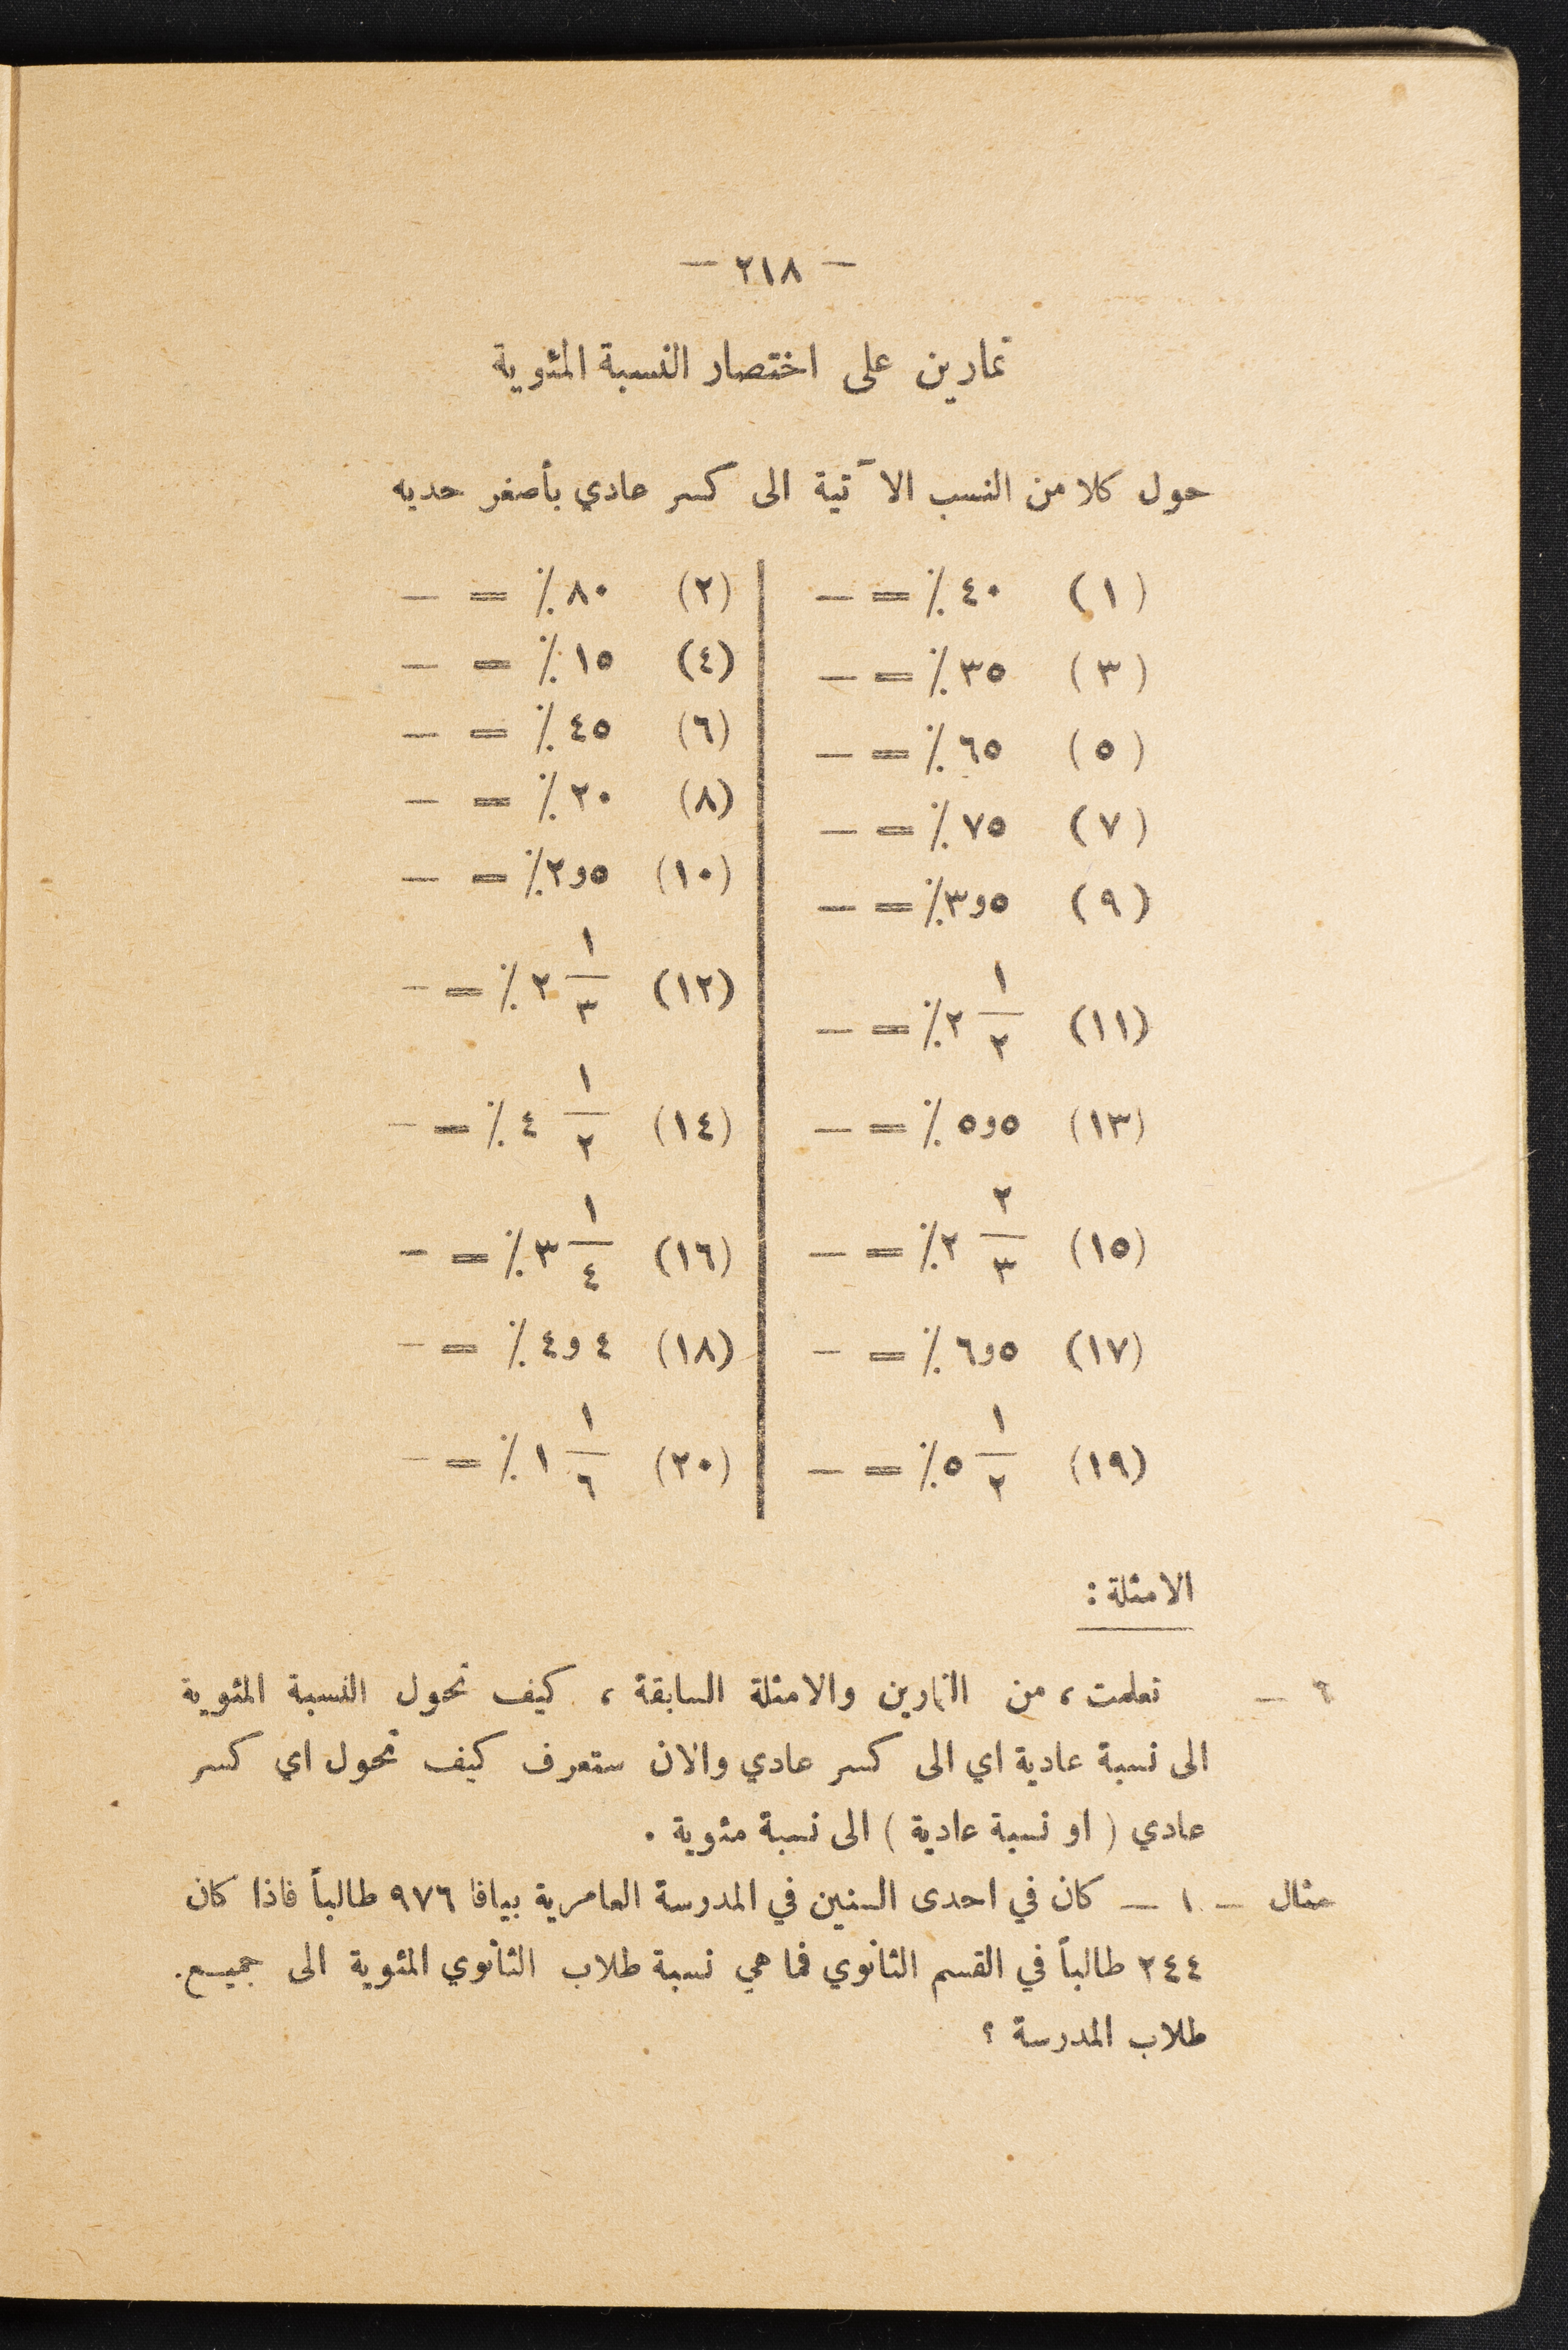 — ٢١٨ —
تمارين على اختصار النسبة المئوية
حول كلا من النسب الآتية الى كسر عادي بأصغر حديه
(١) ٤٠٪ = —
(٣) ٣٥٪ = —
(٥) ٦٥٪ = —
(٧) ٧٥٪ = —
(٩) ٥و٣٪ = —
(١١) ١/٢ ٢٪ = —
(١٣) ٥و٥٪ = —
(١٥) ٢/٣ ٢٪ = —
(١٧) ٥و٦٪ = —
(١٩) ١/٢ ٥٪ = —
(٢) ٨٠٪ = —
(٤) ١٥٪ = —
(٦) ٤٥٪ = —
(٨) ٢٠٪ = —
(١٠) ٥و٢٪ = —
(١٢) ١/٣ ٢٪ = —
(١٤) ١/٢ ٤٪ = —
(١٦) ١/٤ ٣٪ = —
(١٨) ٤و٤٪ = —
(٢٠) ١/٦ ١٪ = —
الامثلة :
٦ — تعلمت ، من التمارين والامثلة السابقة ، كيف تحول النسبة المئوية
الى نسبة عادية اي الى كسر عادي والان ستعرف كيف تحول اي كسر
عادي ( او نسبة عادية ) الى نسبة مئوية .
مثال — ١ — كان في احدى السنين في المدرسة العامرية بيافا ٩٧٦ طالباً فاذا كان
٢٤٤ طالباً في القسم الثانوي فما هي نسبة طلاب الثانوي المئوية الى جميع.
طلاب المدرسة ؟